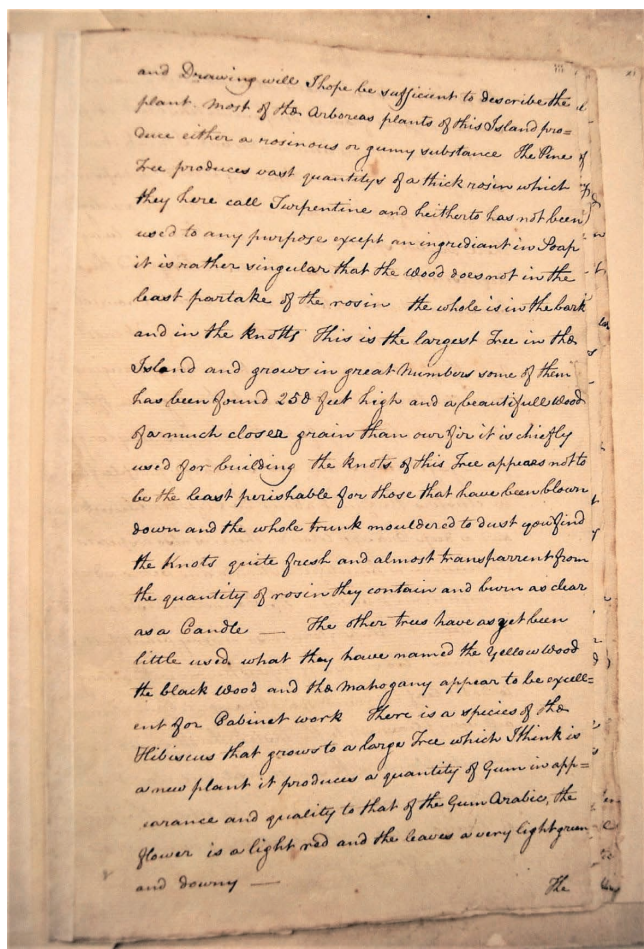 and Drawing will I hope be sufficient to describe the
plant. most of the Arboreas plants of this Island pro=
duce either a rosinous or gumy substance The Pine
Tree produces vast quantitys of a thick rosin which
they here call Turpentine and heitherto has not been
used to any purpose except an ingrediant in Soap
it is rather singular that the Wood does not in the
least partake of the rosin the whole is in the bark
and in the Knotts This is the largest Tree in the
Island and grows in great Numbers some of them
has been found 250 feet high and a beautifull Wood
of a much closer grain than our fir it is chiefly
used for building the Knots of this Tree appears not to
be the least perishable for those that have been blown
down and the whole trunk mouldered to dust you find
the Knots quite fresh and almost transparrent from
the quantity of rosin they contain and burn as clear
as a Candle — The other trees have as yet been
little used. what they have named the Yellow Wood
the black Wood and the Mahogany appear to be excell=
ent for Cabinet work There is a species of the
Hibiscus that grows to a large Tree which I think is
a new plant it produces a quantity of Gum in app=
earance and quality to that of the Gum Arabic, the
flower is a light red and the leaves a very light green
and downy —
The